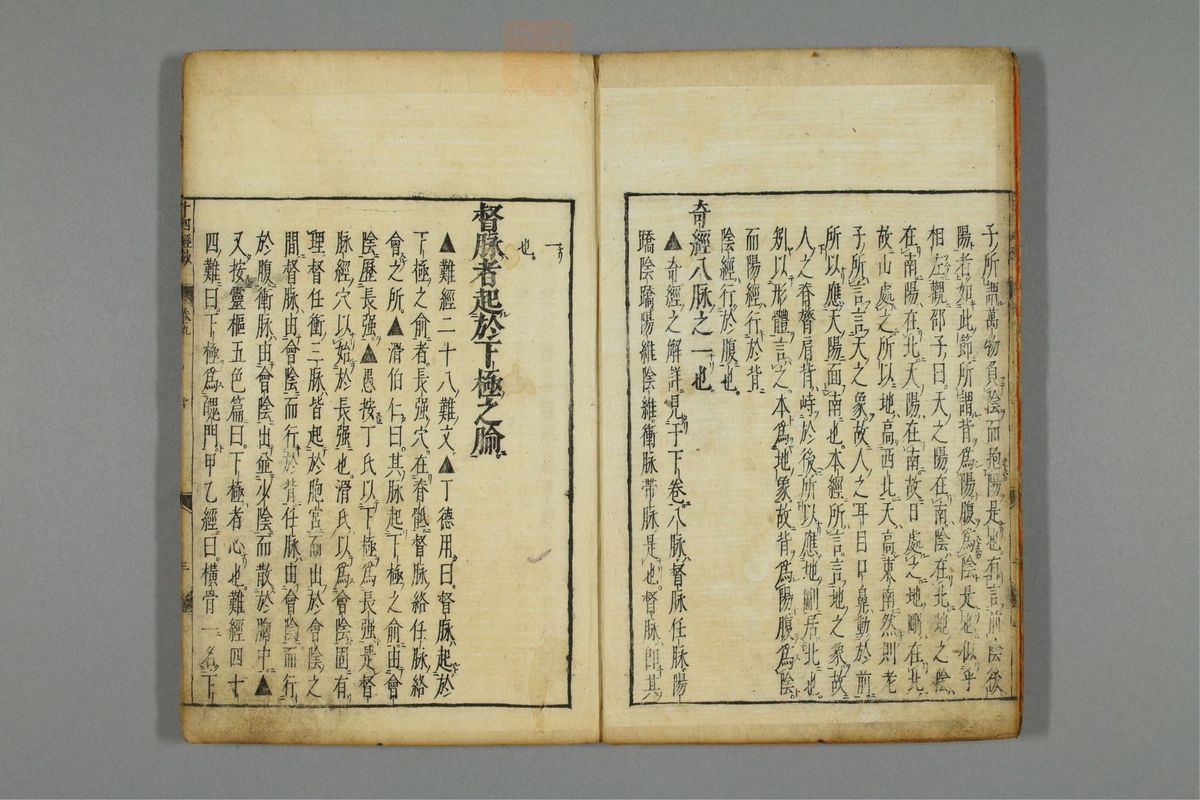 子所謂萬物負陰而抱陽是也有言前陰後
陽者如此節所謂背爲陽腹爲陰是也似乎
相左觀邵子曰天之陽在南陰在北地之陰
在南陽在北天陽在南故日處之地剛在北
故山處之所以地高西北天高東南然則老
子所言言天之象故人之耳目口鼻動於前
所以應天陽面南也本經所言言地之象故
人之脊膂肩背峙於後所以應地剛居北也
矧以形體言之本爲地象故背爲陽腹爲陰
而陽經行於背
陰經行於腹也
奇經八脉之一也
▲奇經之解詳見于下卷八脉督脉任脉陽
蹻陰蹻陽維陰維衝脉帶脉是也督脉即其
一
也
督脉者起於下極之腧
▲難經二十八難文▲丁德用曰督脉起於
下極之俞者長強穴在脊骶督脉絡任脉絡
會之所▲滑伯仁曰其脉起下極之俞由會
陰歷長強▲愚按丁氏以下極爲長強是督
脉經穴以始於長強也滑氏以爲會陰固有
理督任衝三脉皆起於胞宮而出於會陰之
間督脉由會陰而行於背任脉由會陰而行
於腹衝脉由會陰出並少陰而散於胸中▲
又按靈樞五色篇曰下極者心也難經四十
四難曰下極爲魄門甲乙經曰橫骨一名下
十四經
卷九
三